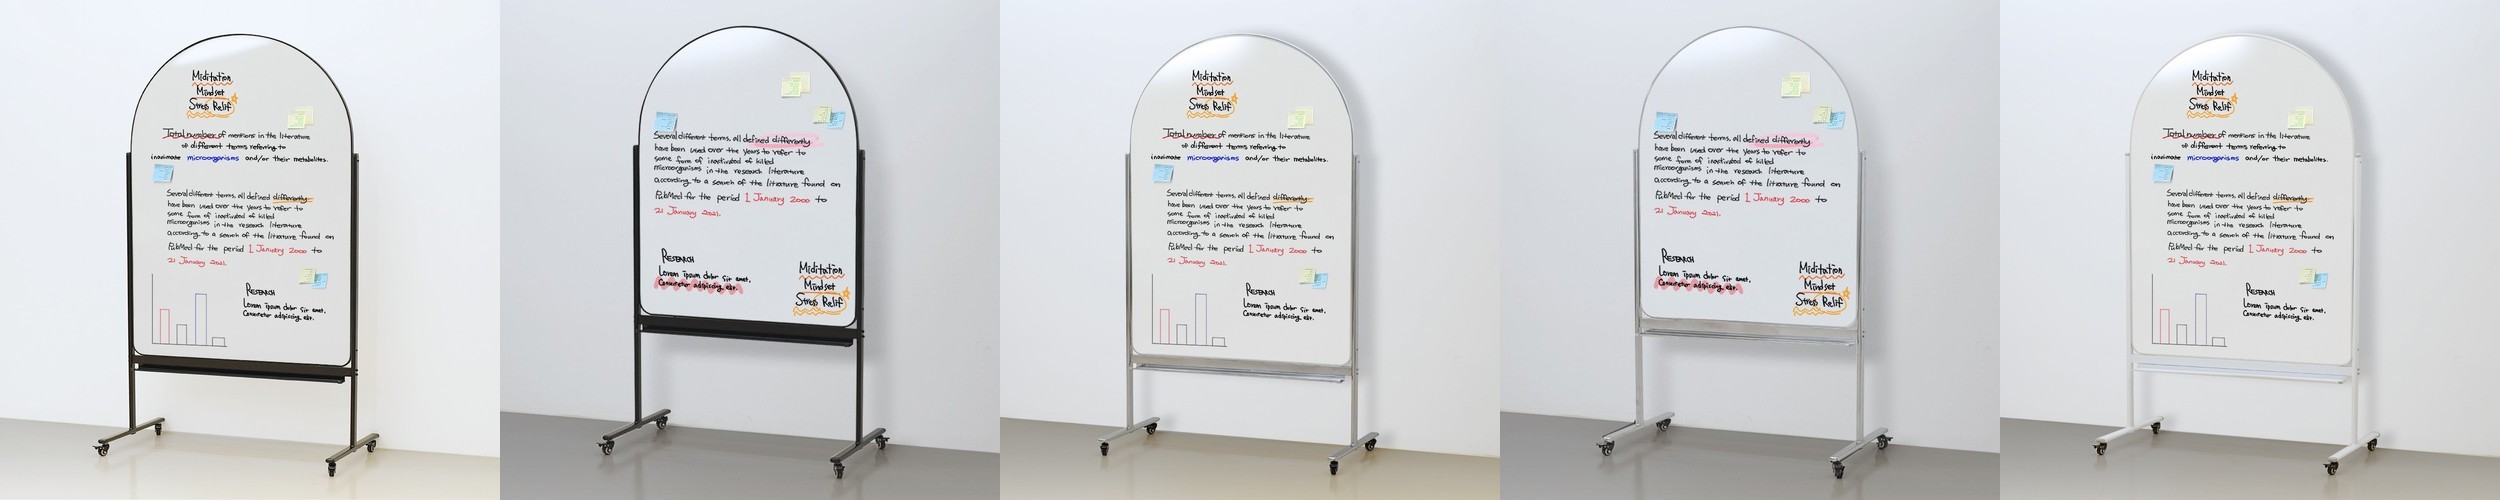 Miditation
Mindset
Stress Relif
Total number of mentions in the literature
of different terms referring to
inanimate microorgnisms and/or their metabolites.
Several different terms, all defined differently
have been used over the years to refer to
some form of inactivated of killed
microorganisms in the research literature
according to a search of the literature found on
PubMed for the period 1 January 2000 to
21 January 2021.
RESEARCH
Lorem ipsum dolor sit amet,
Consectetur adipiscing elit.
Several different terms, all defined differently
have been used over the years to refer to
some form of inactivated of killed
microorganisms in the research literature
according to a search of the literature found on
PubMed for the period 1 January 2000 to
21 January 2021.
RESEARCH
Lorem ipsum dolor sit amet,
Consectetur adipiscing elit.
Miditation
Mindset
Stress Relif
Miditation
Mindset
Stress Relif
Total number of mentions in the literature
of different terms referring to
inanimate microorgnisms and/or their metabolites.
Several different terms, all defined differently
have been used over the years to refer to
some form of inactivated of killed
microorganisms in the research literature
according to a search of the literature found on
PubMed for the period 1 January 2000 to
21 January 2021.
RESEARCH
Lorem ipsum dolor sit amet,
Consectetur adipiscing elit.
Several different terms, all defined differently
have been used over the years to refer to
some form of inactivated of killed
microorganisms in the research literature
according to a search of the literature found on
PubMed for the period 1 January 2000 to
21 January 2021.
RESEARCH
Lorem ipsum dolor sit amet,
Consectetur adipiscing elit.
Miditation
Mindset
Stress Relif
Miditation
Mindset
Stress Relif
Total number of mentions in the literature
of different terms referring to
inanimate microorgnisms and/or their metabolites.
Several different terms, all defined differently
have been used over the years to refer to
some form of inactivated of killed
microorganisms in the research literature
according to a search of the literature found on
PubMed for the period 1 January 2000 to
21 January 2021.
RESEARCH
Lorem ipsum dolor sit amet,
Consectetur adipiscing elit.